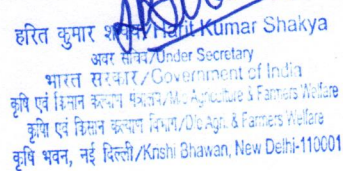 हरित कुमार Harit Kumar Shakya
अवर सचिव/Under Secretary
भारत सरकार/Government of India
कृषि एवं किसान कल्याण मंत्रालय/M/o Agriculture & Farmers Welfare
कृषि एवं किसान कल्याण विभाग/D/o Agri. & Farmers Welfare
कृषि भवन, नई दिल्ली/Krishi Bhawan, New Delhi-110001